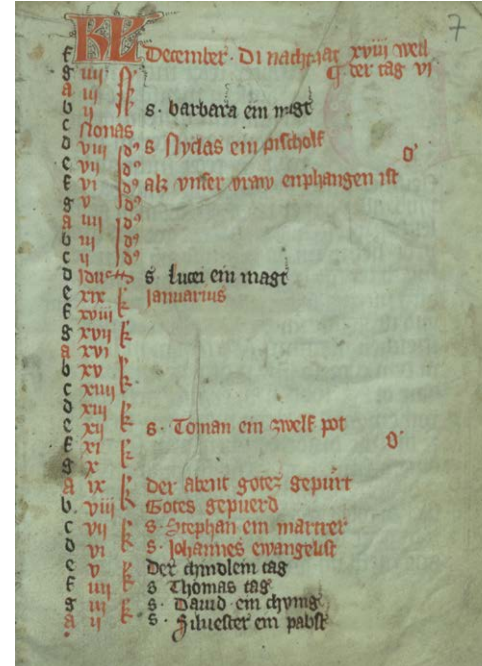 7
KL December · Di nacht hat xviii weil
f ¶ der tag vi
g iiii
a iii
b ii s · barbara ein magt
c Nonas
d viii id9 s Nyclas ein pischolf
e vii id9 o'
f vi id9 alz vnser vraw enphangen ist
g v id9
a iiii id9
b iii id9
c ii id9
d idus s · Lucei ein magt
e xix k Januarius
f xviii k
g xvii k
a xvi k
b xv k
c xiiii k
d xiii k
e xii k s · Toman ein zwelf pot
f xi k o'
g x k
a ix k der abent gotez gepurt
b viii k Gotes gepuerd
c vii k s · Stephan ein martrer
d vi k s · Johannes ewangelist
e v k Der chindlein tag
f iiii k s Thomas tag
g iii k s · Dauid ein chynig
a ii k s · Siluester ein pabst